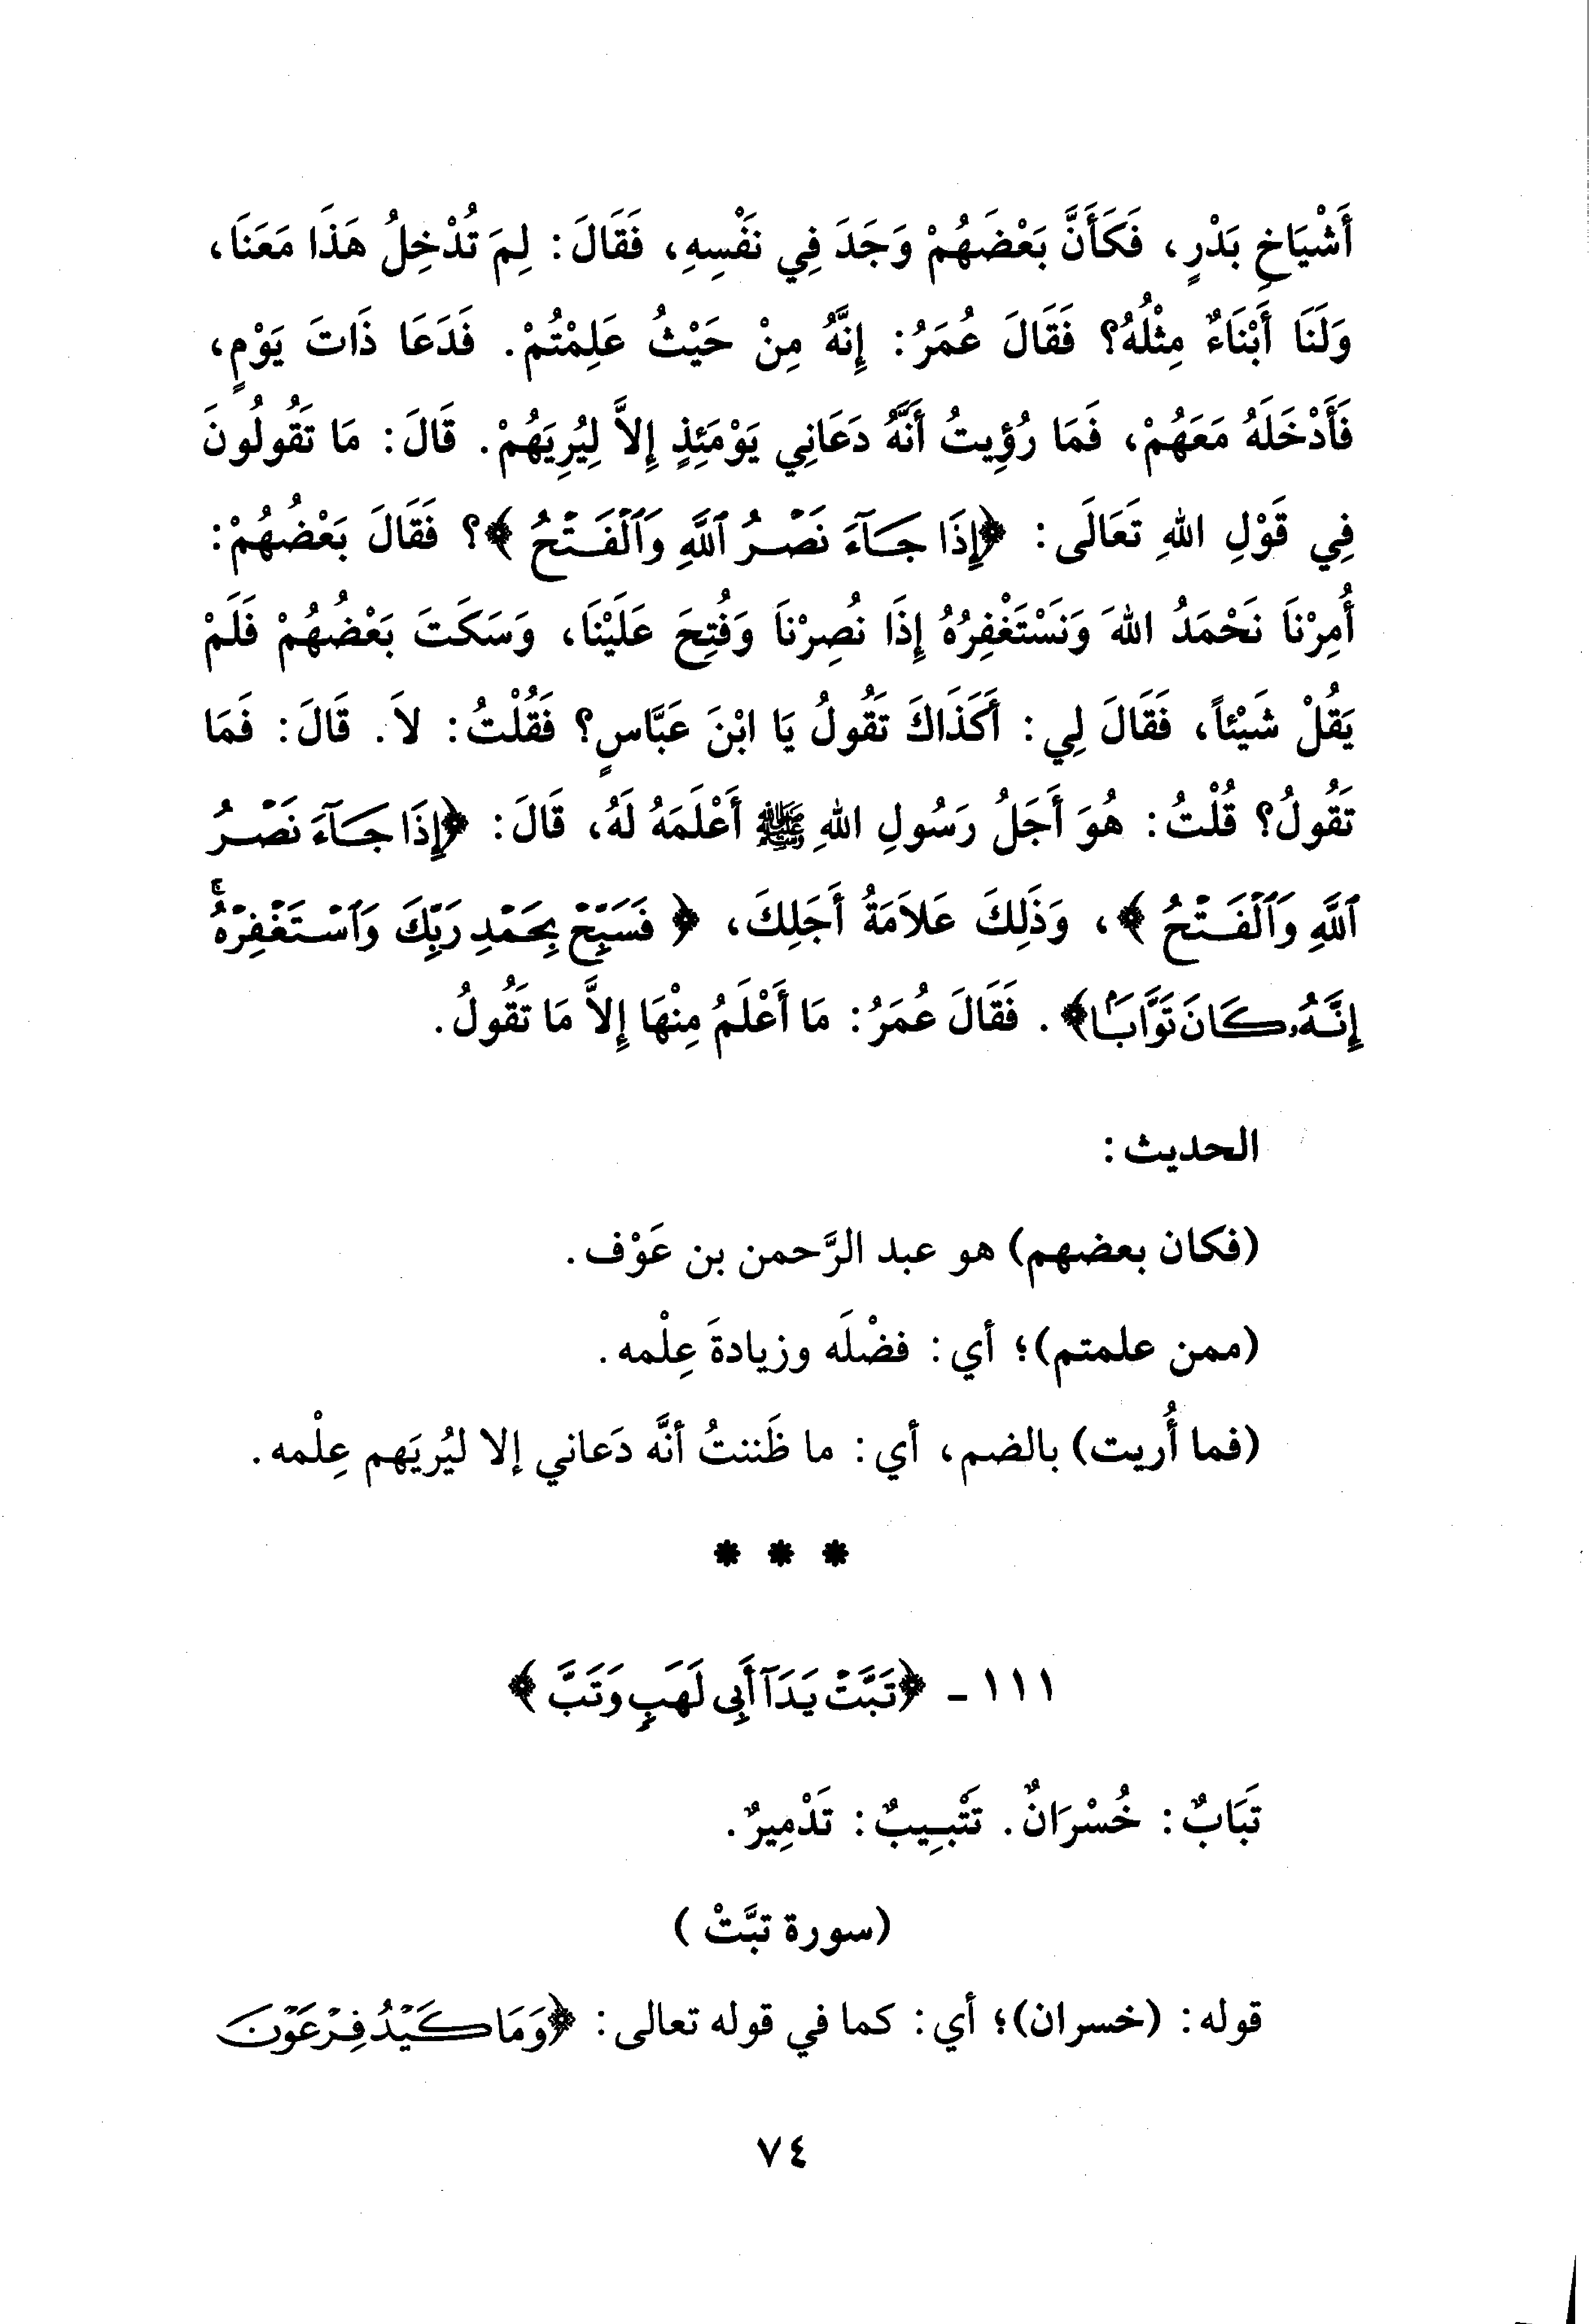 أَشْيَاخِ بَدْرٍ، فَكَأَنَّ بَعْضَهُمْ وَجَدَ فِي نَفْسِهِ، فَقَالَ: لِمَ تُدْخِلُ هَذَا مَعَنَا،
وَلَنَا أَبْنَاءٌ مِثْلُهُ؟ فَقَالَ عُمَرُ: إِنَّهُ مِنْ حَيْثُ عَلِمْتُمْ. فَدَعَا ذَاتَ يَوْمٍ،
فَأَدْخَلَهُ مَعَهُمْ، فَمَا رُؤِيتُ أَنَّهُ دَعَانِي يَوْمَئِذٍ إِلاَّ لِيُرِيَهُمْ. قَالَ: مَا تَقُولُونَ
فِي قَوْلِ اللهِ تَعَالَى: ﴿إِذَا جَآءَ نَصْرُ ٱللَّهِ وَٱلْفَتْحُ﴾؟ فَقَالَ بَعْضُهُمْ:
أُمِرْنَا نَحْمَدُ اللهَ وَنَسْتَغْفِرُهُ إِذَا نُصِرْنَا وَفُتِحَ عَلَيْنَا، وَسَكَتَ بَعْضُهُمْ فَلَمْ
يَقُلْ شَيْئاً، فَقَالَ لِي: أَكَذَاكَ تَقُولُ يَا ابْنَ عَبَّاسٍ؟ فَقُلْتُ: لاَ. قَالَ: فَمَا
تَقُولُ؟ قُلْتُ: هُوَ أَجَلُ رَسُولِ اللهِ ﷺ أَعْلَمَهُ لَهُ، قَالَ: ﴿إِذَا جَآءَ نَصْرُ
ٱللَّهِ وَٱلْفَتْحُ﴾، وَذَلِكَ عَلاَمَةُ أَجَلِكَ، ﴿فَسَبِّحْ بِحَمْدِ رَبِّكَ وَٱسْتَغْفِرْهُ ۚ
إِنَّهُۥ كَانَ تَوَّابًۢا﴾. فَقَالَ عُمَرُ: مَا أَعْلَمُ مِنْهَا إِلاَّ مَا تَقُولُ.
الحديث:
(فكان بعضهم) هو عبد الرَّحمن بن عَوْف.
(ممن علمتم)؛ أي: فضْلَه وزيادةَ عِلْمه.
(فما أُريت) بالضم، أي: ما ظَننتُ أنَّه دَعاني إلا ليُريَهم عِلْمه.
* * *
١١١ - ﴿تَبَّتْ يَدَآ أَبِى لَهَبٍ وَتَبَّ﴾
تَبَابٌ: خُسْرَانٌ. تَتْبِيبٌ: تَدْمِيرٌ.
(سورة تبَّتْ)
قوله: (خسران)؛ أي: كما في قوله تعالى: ﴿وَمَا كَيْدُ فِرْعَوْنَ
٧٤